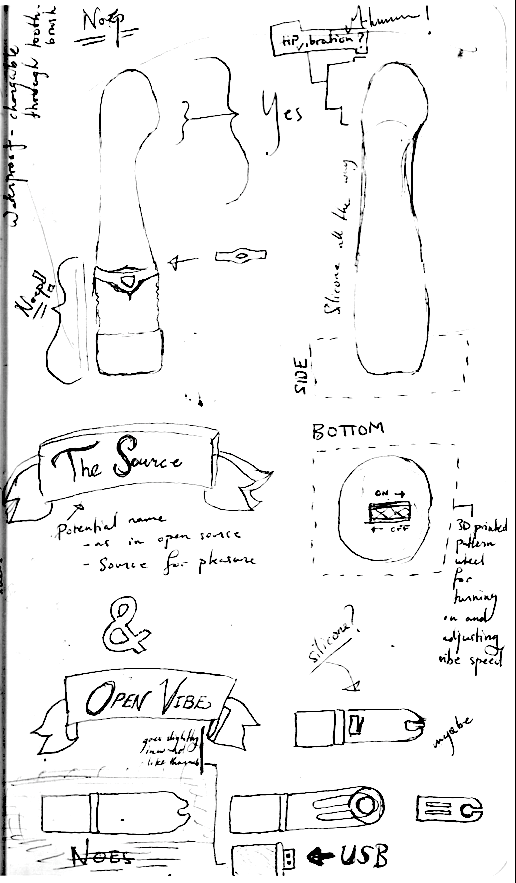 Waterproof - chargable
through tooth-
brush
Noep
HP, vibration?
Ahumm!
Yes
Silicone all the way
Noep!!
SIDE
The Source
Potential name
- as in open source
- Source for pleasure
BOTTOM
ON →
← OFF
3D printed
pattern
wheel
for
turning
on and
adjusting
vibe speed
&
silicone?
OPEN VIBE
goes slightly
inward
like
myabe
NOES
← USB